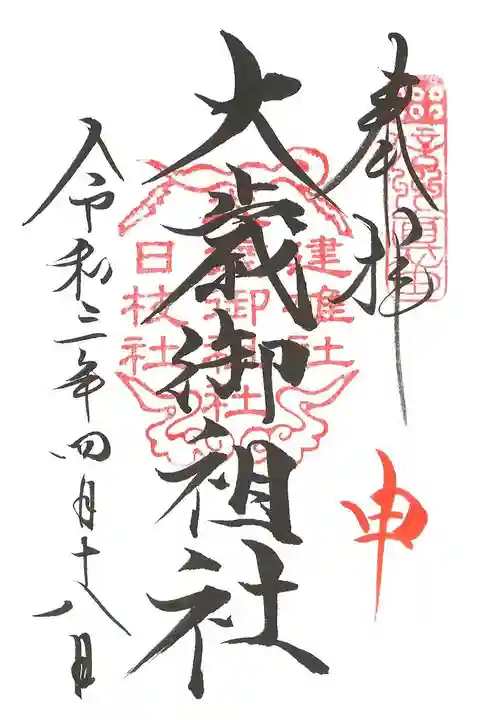 奉拝
申
大歳御祖社
建進社
日枝社
令和三年四月十八日